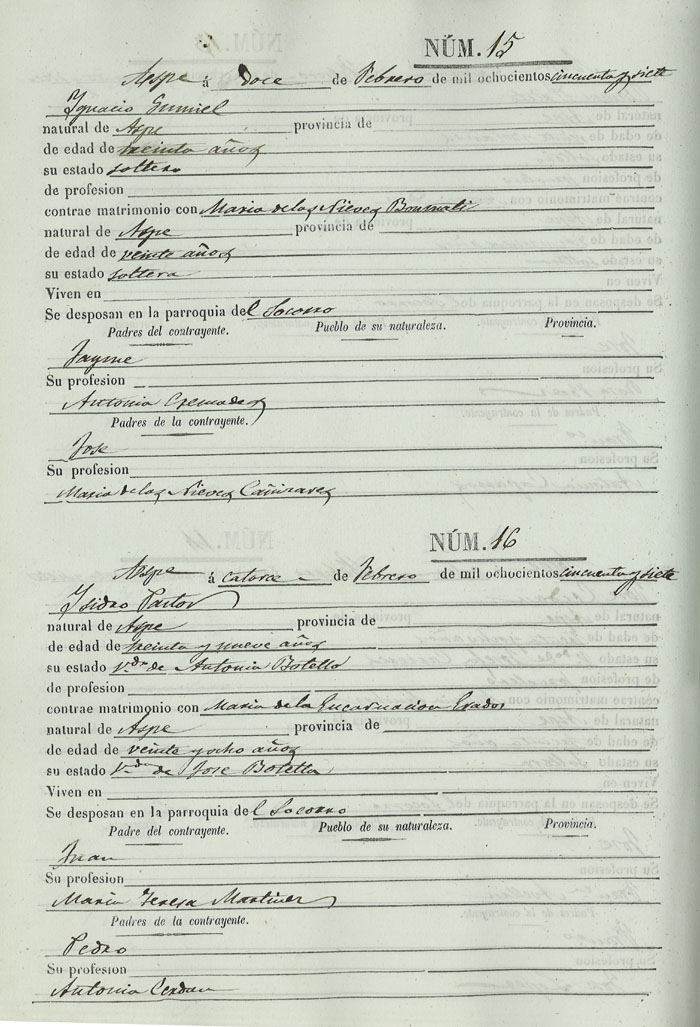 NÚM. 15
Aspe á doce de Febrero de mil ochocientos cincuenta y siete
Ygnacio Gumiel
natural de Aspe provincia de
de edad de treinta años
su estado soltero
de profesion
contrae matrimonio con Maria de las Nieves
natural de Aspe provincia de
de edad de veinte años
su estado soltera
Viven en
Se desposan en la parroquia del Socorro
Padres del contrayente. Pueblo de su naturaleza. Provincia.
Jayme
Su profesion
Antonia Cremades
Padres de la contrayente.
Jose
Su profesion
Maria de las Nieves Cañizares
NÚM. 16
Aspe á catorce de Febrero de mil ochocientos cincuenta y siete
Ysidro Pastor
natural de Aspe provincia de
de edad de treinta y nueve años
su estado V.do de Antonia Botella
de profesion
contrae matrimonio con Maria de la Encarnacion
natural de Aspe provincia de
de edad de veinte y ocho años
su estado V.da de Jose Botella
Viven en
Se desposan en la parroquia del Socorro
Padre del contrayente. Pueblo de su naturaleza. Provincia.
Juan
Su profesion
Maria Teresa Martinez
Padres de la contrayente.
Pedro
Su profesion
Antonia Cerdan